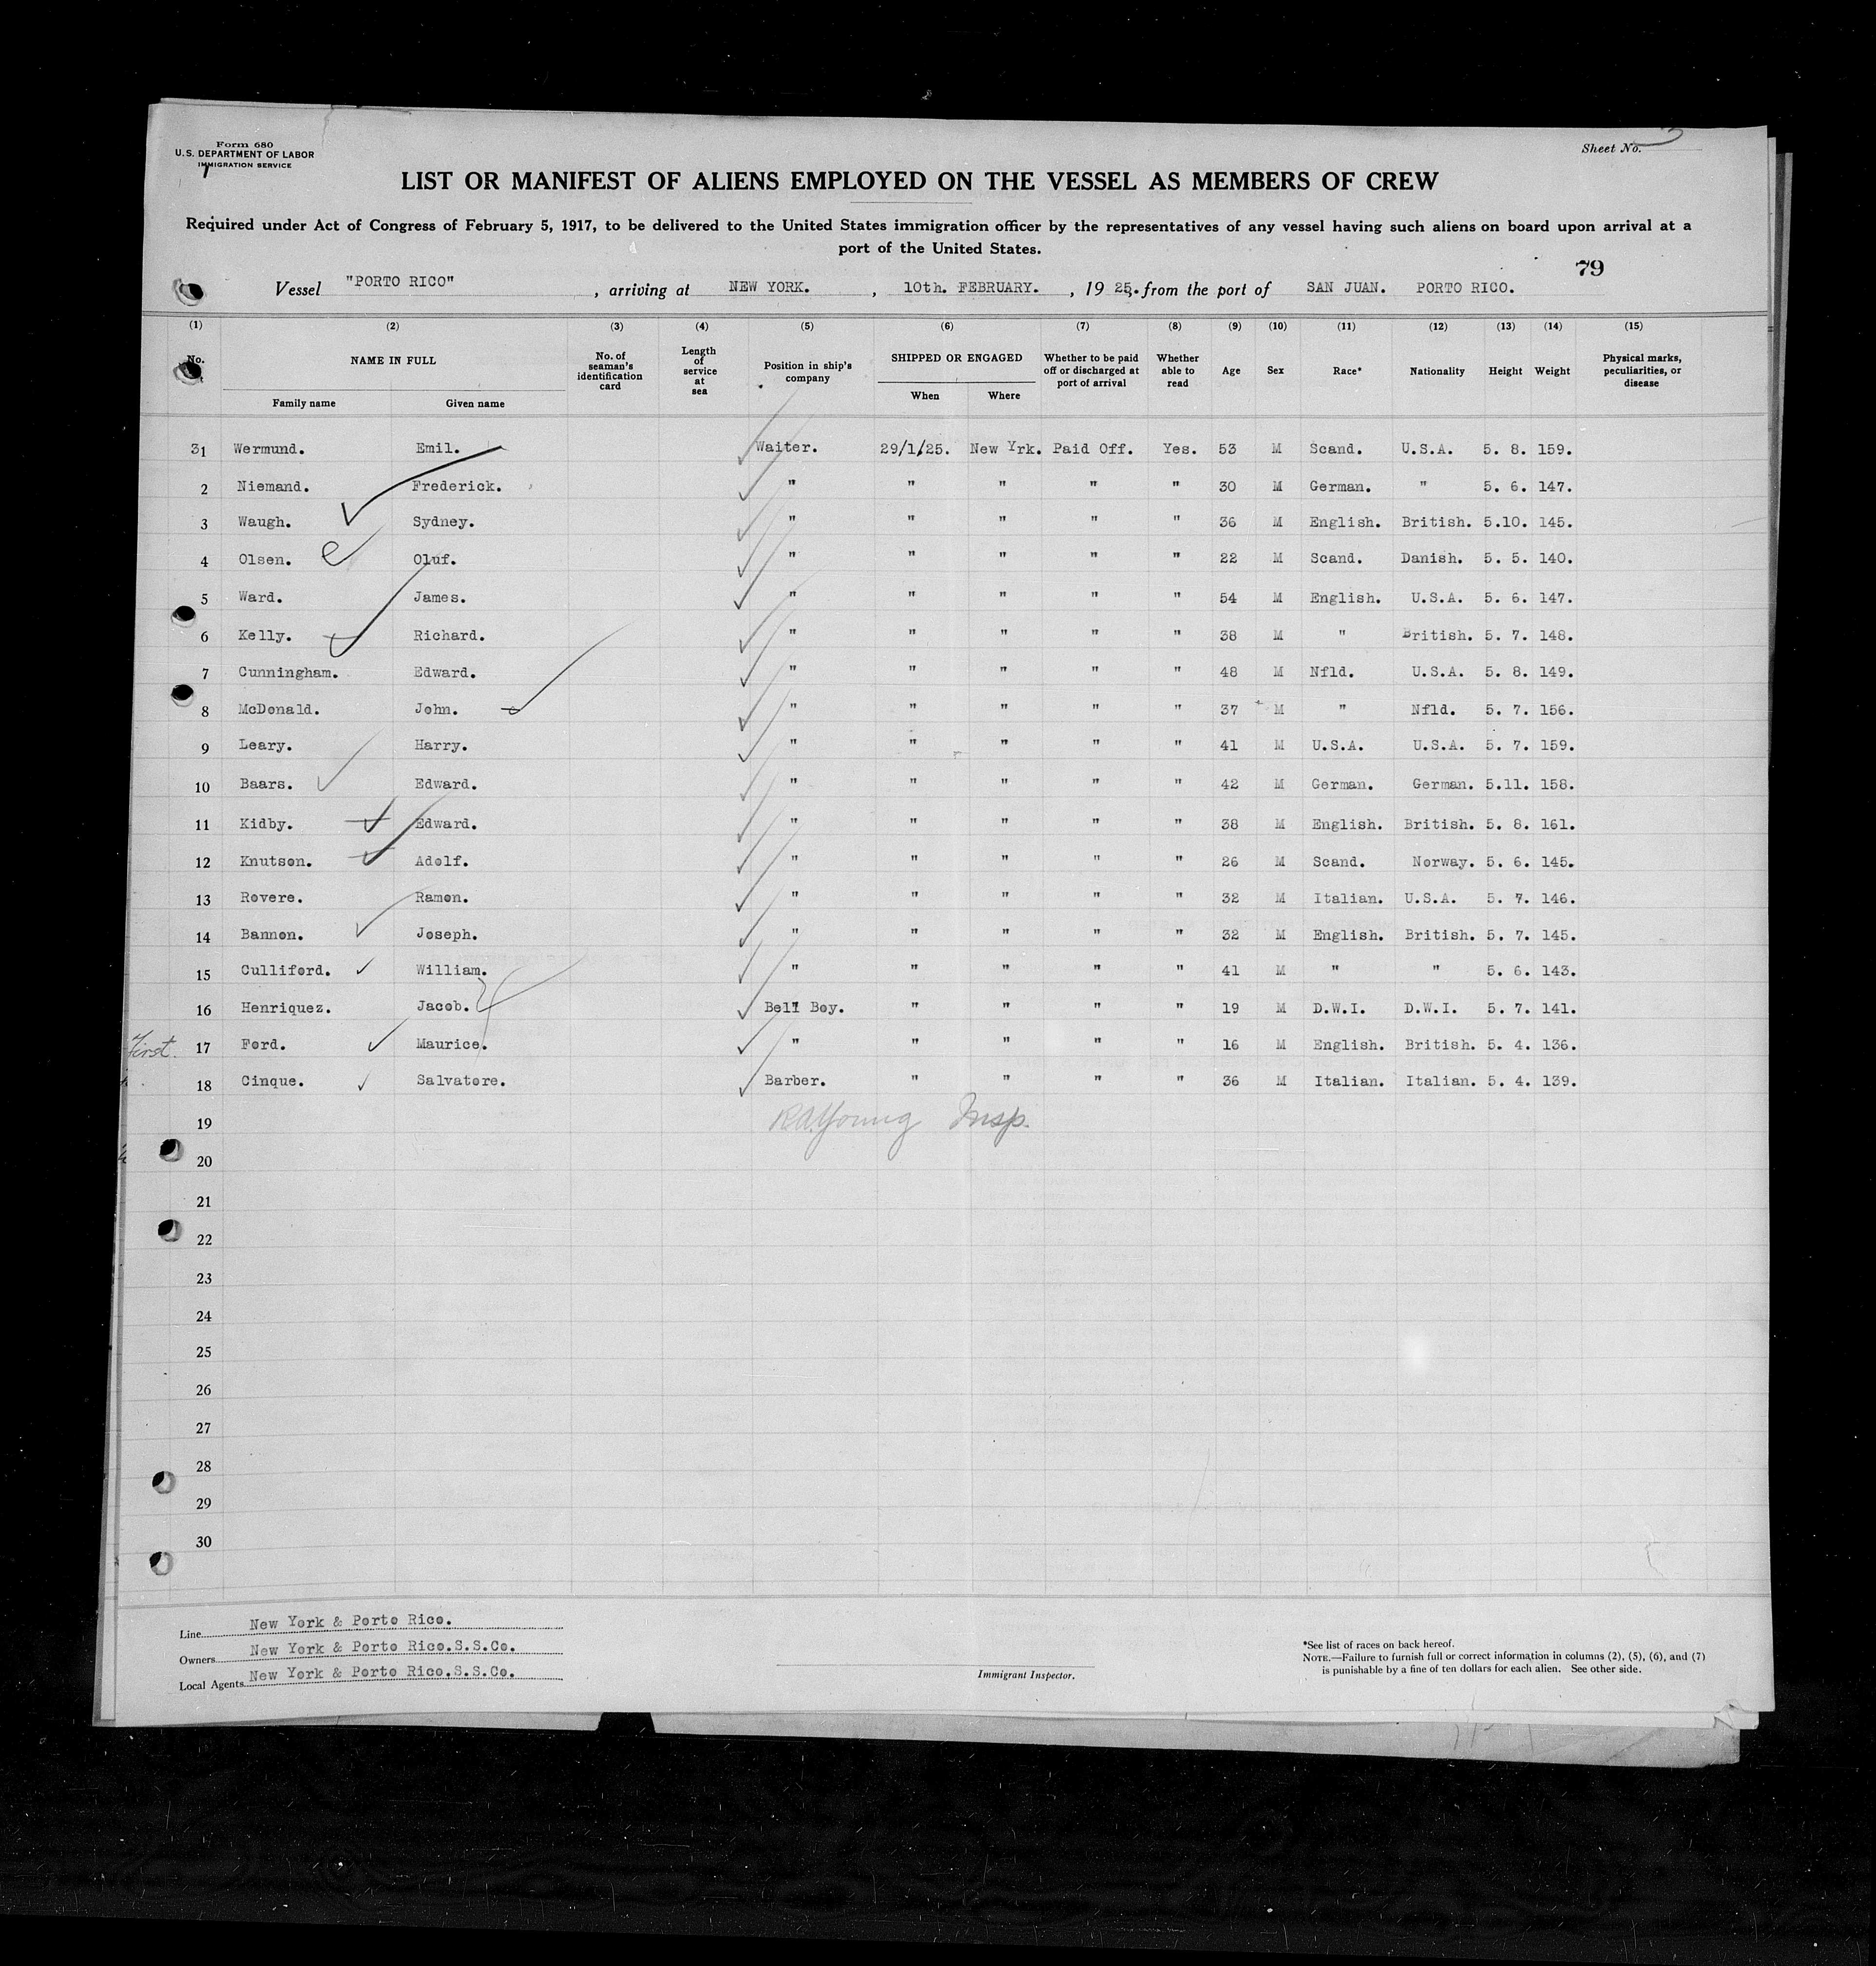 Form 680
U. S. DEPARTMENT OF LABOR
IMMIGRATION SERVICE
Sheet No. 3
LIST OR MANIFEST OF ALIENS EMPLOYED ON THE VESSEL AS MEMBERS OF CREW
Required under Act of Congress of February 5, 1917, to be delivered to the United States immigration officer by the representatives of any vessel having such aliens on board upon arrival at a
port of the United States.
79
Vessel "PORTO RICO" , arriving at NEW YORK. , 10th. FEBRUARY. , 19 25. from the port of SAN JUAN. PORTO RICO.
(1) (2) (3) (4) (5) (6) (7) (8) (9) (10) (11) (12) (13) (14) (15)
No. NAME IN FULL Family name Given name No. of seaman's identification card Length of service at sea Position in ship's company SHIPPED OR ENGAGED When Where Whether to be paid off or discharged at port of arrival Whether able to read Age Sex Race* Nationality Height Weight Physical marks, peculiarities, or disease
31 Wermund. Emil. Waiter. 29/1/25. New Yrk. Paid Off. Yes. 53 M Scand. U.S.A. 5. 8. 159.
2 Niemand. Frederick. " " " " " 30 M German. " 5. 6. 147.
3 Waugh. Sydney. " " " " " 36 M English. British. 5.10. 145.
4 Olsen. Oluf. " " " " " 22 M Scand. Danish. 5. 5. 140.
5 Ward. James. " " " " " 54 M English. U.S.A. 5. 6. 147.
6 Kelly. Richard. " " " " " 38 M " British. 5. 7. 148.
7 Cunningham. Edward. " " " " " 48 M Nfld. U.S.A. 5. 8. 149.
8 McDonald. John. " " " " " 37 M " Nfld. 5. 7. 156.
9 Leary. Harry. " " " " " 41 M U.S.A. U.S.A. 5. 7. 159.
10 Baars. Edward. " " " " " 42 M German. German. 5.11. 158.
11 Kidby. Edward. " " " " " 38 M English. British. 5. 8. 161.
12 Knutson. Adolf. " " " " " 26 M Scand. Norway. 5. 6. 145.
13 Rovere. Ramon. " " " " " 32 M Italian. U.S.A. 5. 7. 146.
14 Bannon. Joseph. " " " " " 32 M English. British. 5. 7. 145.
15 Culliford. William. " " " " " 41 M " " 5. 6. 143.
16 Henriquez. Jacob. Bell Boy. " " " " 19 M D.W.I. D.W.I. 5. 7. 141.
First. 17 Ford. Maurice. " " " " " 16 M English. British. 5. 4. 136.
18 Cinque. Salvatore. Barber. " " " " 36 M Italian. Italian. 5. 4. 139.
19 R.A.Young Insp.
20
21
22
23
24
25
26
27
28
29
30
Line New York & Porto Rico.
Owners New York & Porto Rico.S.S.Co.
Local Agents New York & Porto Rico.S.S.Co.
Immigrant Inspector.
*See list of races on back hereof.
NOTE.—Failure to furnish full or correct information in columns (2), (5), (6), and (7)
is punishable by a fine of ten dollars for each alien. See other side.